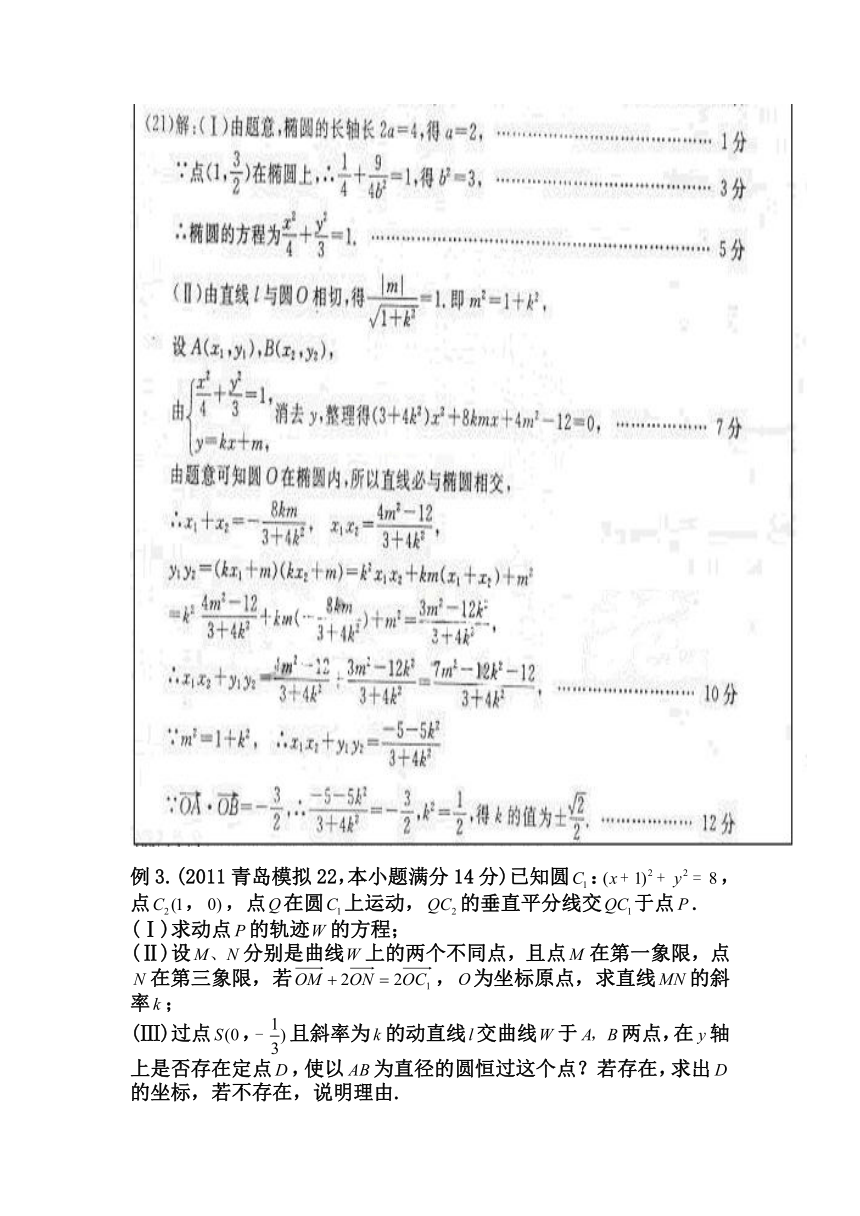 (21)解:(Ⅰ)由题意,椭圆的长轴长2a=4,得a=2, …………………… 1分
∵点(1,3/2)在椭圆上,∴1/4+9/4b²=1,得b²=3, …………………… 3分
∴椭圆的方程为x²/4+y²/3=1. …………………… 5分
(Ⅱ)由直线l与圆O相切,得|m|/√(1+k²)=1.即m²=1+k²,
设A(x₁,y₁),B(x₂,y₂),
由{x²/4+y²/3=1, y=kx+m, 消去y,整理得(3+4k²)x²+8kmx+4m²-12=0, ……………… 7分
由题意可知圆O在椭圆内,所以直线必与椭圆相交,
∴x₁+x₂=-8km/(3+4k²), x₁x₂=(4m²-12)/(3+4k²),
y₁y₂=(kx₁+m)(kx₂+m)=k²x₁x₂+km(x₁+x₂)+m²
=k²(4m²-12)/(3+4k²)+km(-8km/(3+4k²))+m²=(3m²-12k²)/(3+4k²),
∴x₁x₂+y₁y₂=(4m²-12)/(3+4k²)+(3m²-12k²)/(3+4k²)=(7m²-12k²-12)/(3+4k²), ……………… 10分
∵m²=1+k², ∴x₁x₂+y₁y₂=(-5-5k²)/(3+4k²)
∵OA·OB=-3/2,∴(-5-5k²)/(3+4k²)=-3/2,k²=1/2,得k的值为±√2/2. ……………… 12分
例3.(2011青岛模拟22,本小题满分14分)已知圆C₁:(x+1)²+ y²= 8,
点C₂(1, 0),点Q在圆C₁上运动,QC₂的垂直平分线交QC₁于点P.
(Ⅰ)求动点P的轨迹W的方程;
(Ⅱ)设M、N分别是曲线W上的两个不同点,且点M在第一象限,点
N在第三象限,若OM+2ON=2OC₁,O为坐标原点,求直线MN的斜
率k;
(Ⅲ)过点S(0,-1/3)且斜率为k的动直线l交曲线W于A,B两点,在y轴
上是否存在定点D,使以AB为直径的圆恒过这个点?若存在,求出D
的坐标,若不存在,说明理由.